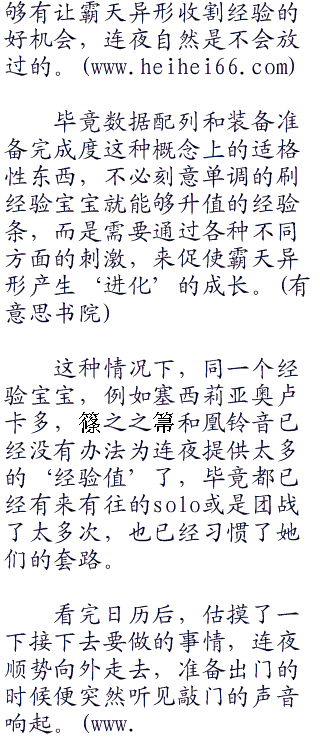 够有让霸天异形收割经验的
好机会，连夜自然是不会放
过的。(www.heihei66.com)
毕竟数据配列和装备准
备完成度这种概念上的适格
性东西，不必刻意单调的刷
经验宝宝就能够升值的经验
条，而是需要通过各种不同
方面的刺激，来促使霸天异
形产生‘进化’的成长。(有
意思书院)
这种情况下，同一个经
验宝宝，例如塞西莉亚奥卢
卡多，篠之之箒和凰铃音已
经没有办法为连夜提供太多
的‘经验值’了，毕竟都已
经有来有往的solo或是团战
了太多次，也已经习惯了她
们的套路。
看完日历后，估摸了一
下接下去要做的事情，连夜
顺势向外走去，准备出门的
时候便突然听见敲门的声音
响起。(www.